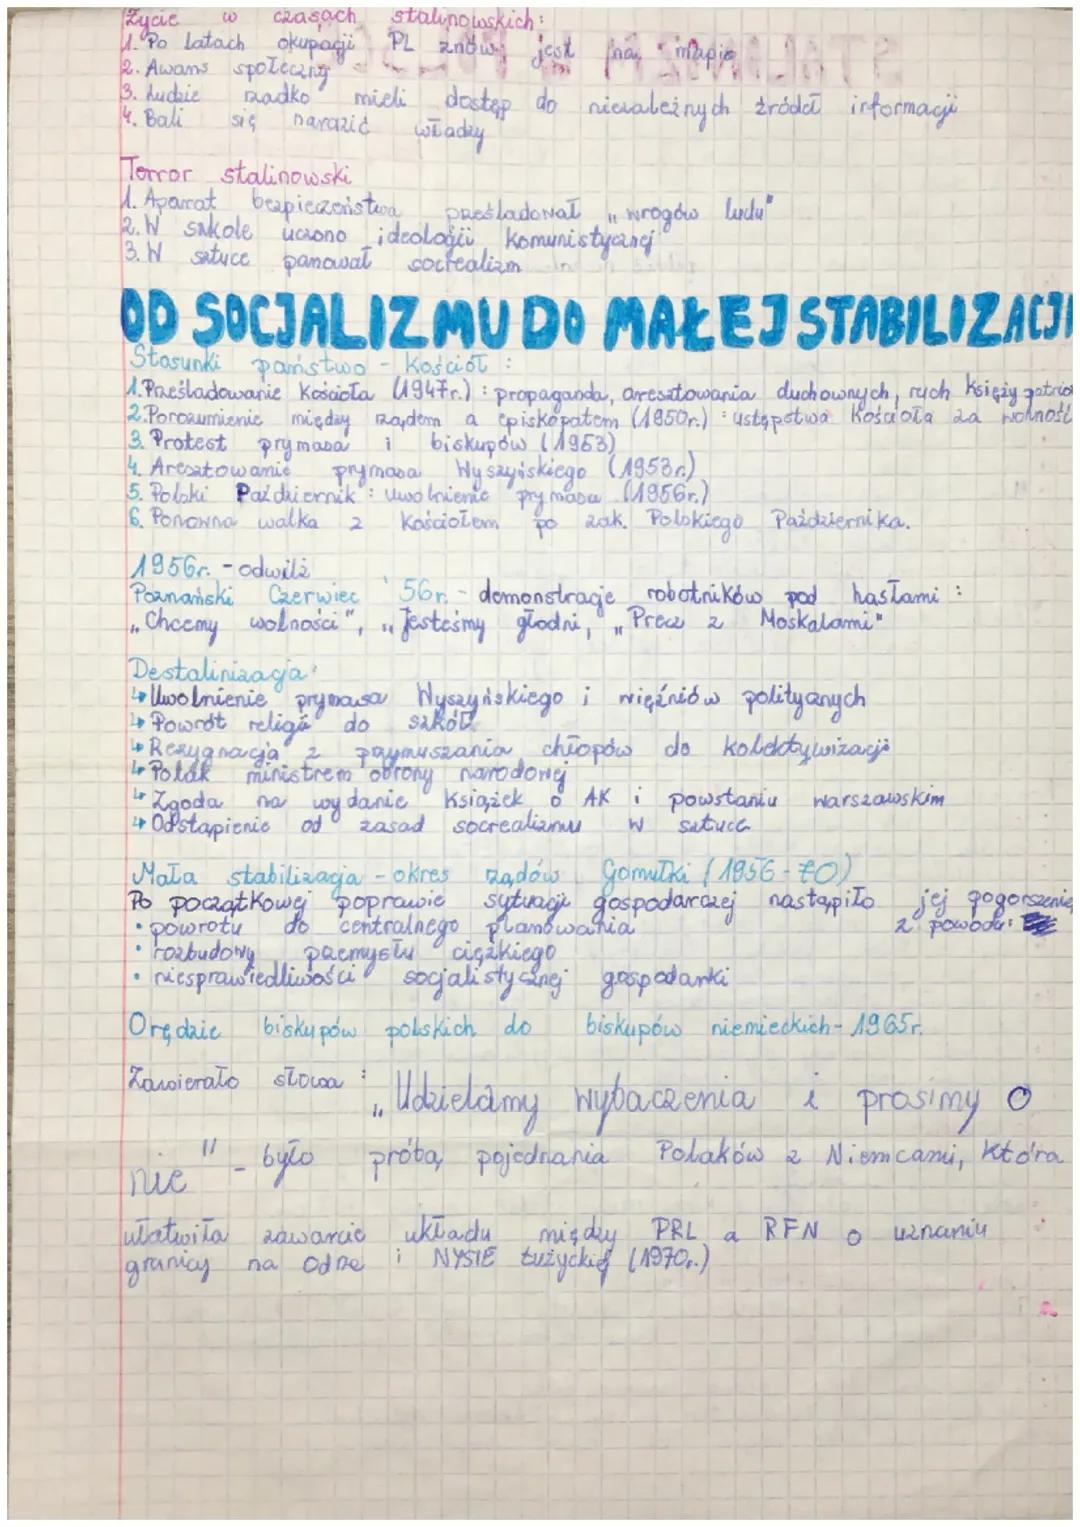 Życie w czasach stalinowskich:
1. Po latach okupacji PL znów jest na mapie
2. Awans społeczny
3. Ludzie rzadko mieli dostęp do niezależnych źródeł informacji
4. Bali się narazić władzy
Terror stalinowski
1. Aparat bezpieczeństwa prześladował „wrogów ludu"
2. W szkole uczono ideologii komunistycznej
3. W sztuce panował socrealizm
OD SOCJALIZMU DO MAŁEJ STABILIZACJI
Stosunki państwo - Kościół :
1. Prześladowanie Kościoła (1947r.) : propaganda, aresztowania duchownych, ruch Księży patrio
2. Porozumienie między rządem a episkopatem (1950r.) : ustępstwa Kościoła za wolność
3. Protest prymasa i biskupów (1953)
4. Aresztowanie prymasa Wyszyńskiego (1953r.)
5. Polski Październik : uwolnienie prymasa (1956r.)
6. Ponowna walka z Kościołem po zak. Polskiego Października.
1956r. - odwilż
Poznański Czerwiec '56r. - demonstracje robotników pod hasłami :
„Chcemy wolności", „Jesteśmy głodni, „Precz z Moskalami"
Destalinizacja:
↳ Uwolnienie prymasa Wyszyńskiego i więźniów politycznych
↳ Powrót religii do szkół
↳ Rezygnacja z przymuszania chłopów do kolektywizacji
↳ Polak ministrem obrony narodowej
↳ Zgoda na wydanie książek o AK i powstaniu warszawskim
↳ Odstąpienie od zasad socrealizmu w sztuce
Mała stabilizacja - okres rządów Gomułki (1956-70)
Po początkowej poprawie sytuacji gospodarczej nastąpiło jej pogorszenie
z powodu:
• powrotu do centralnego planowania
• rozbudowy przemysłu ciężkiego
• niesprawiedliwości socjalistycznej gospodarki
Orędzie biskupów polskich do biskupów niemieckich - 1965r.
Zawierało słowa : „Udzielamy wybaczenia i prosimy o
nie" - było próbą pojednania Polaków z Niemcami, która
ułatwiła zawarcie układu między PRL a RFN o uznaniu
granicy na Odrze i NYSIE Łużyckiej (1970r.)